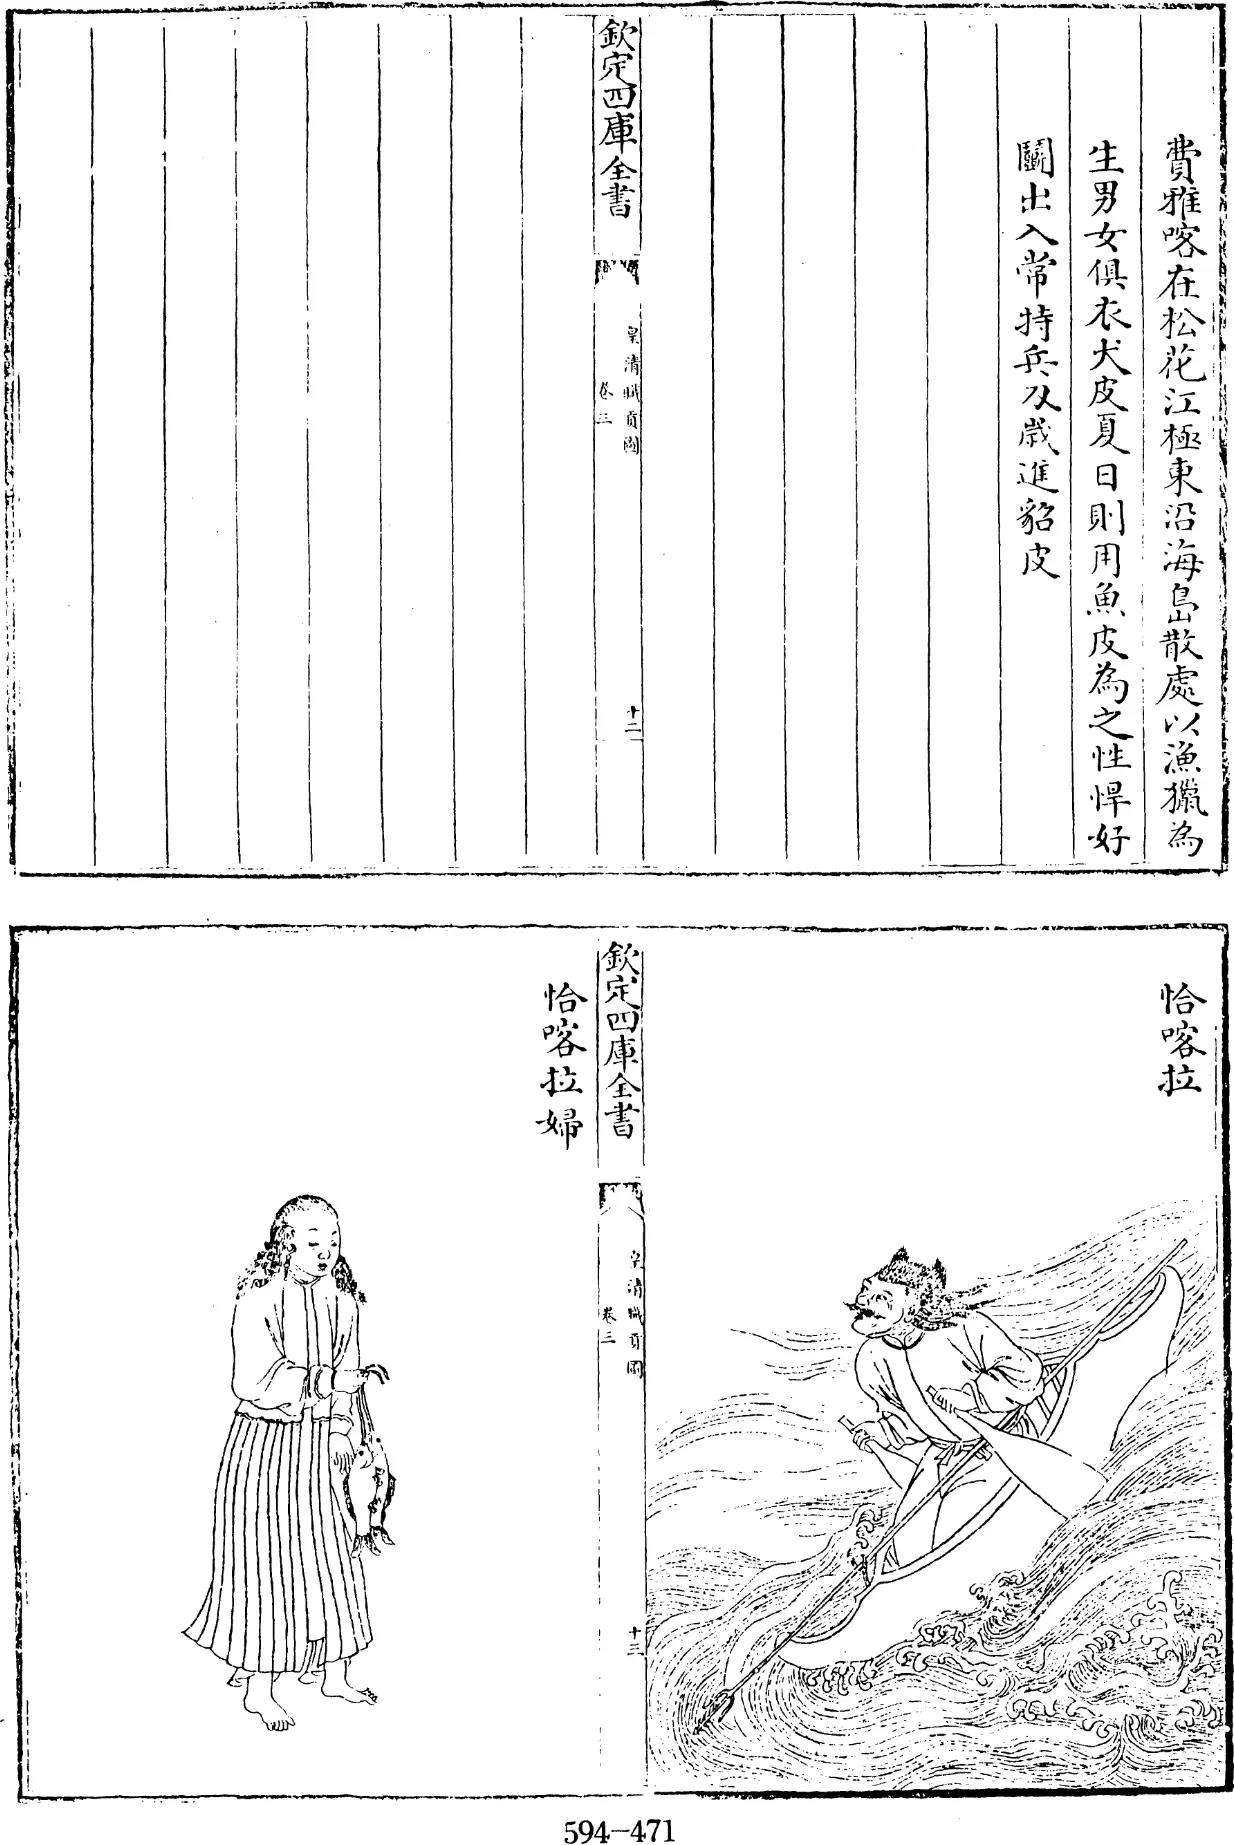 費雅喀在松花江極東沿海島散處以漁獵為
生男女俱衣犬皮夏日則用魚皮為之性悍好
鬭出入常持兵刄歲進貂皮
欽定四庫全書
皇清職貢圖
卷三
十二
恰喀拉
欽定四庫全書
皇清職貢圖
卷三
十三
恰喀拉婦
594-471